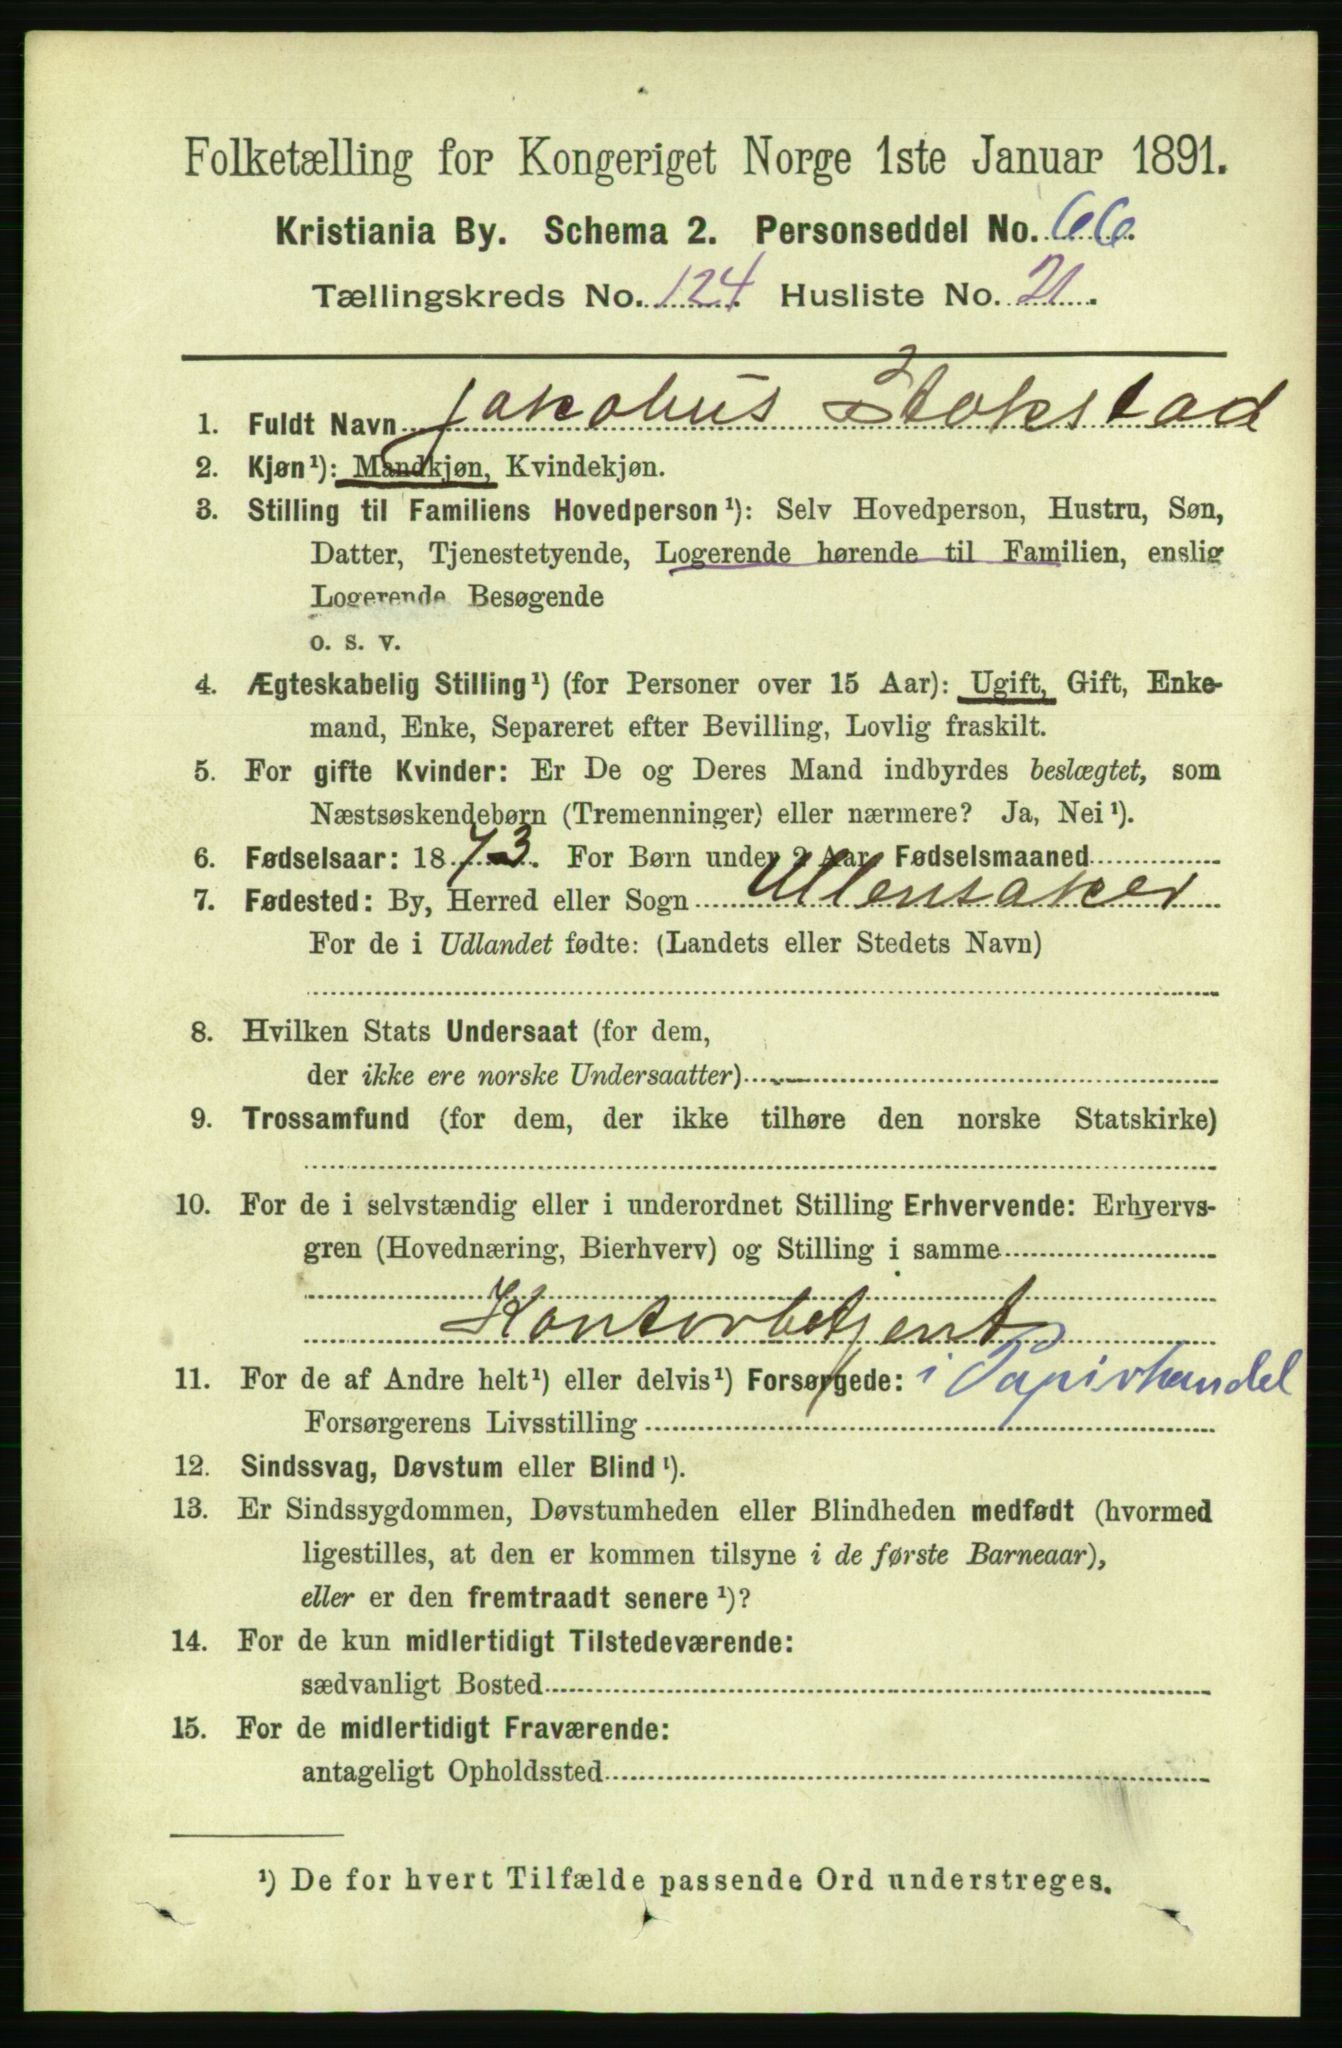 Folketælling for Kongeriget Norge 1ste Januar 1891.
Kristiania By. Schema 2. Personseddel No. 66.
Tællingskreds No. 124. Husliste No. 21.
1. Fuldt Navn Jakobus Stokstad
2. Kjøn¹): Mandkjøn, Kvindekjøn.
3. Stilling til Familiens Hovedperson¹): Selv Hovedperson, Hustru, Søn,
Datter, Tjenestetyende, Logerende hørende til Familien, enslig
Logerende Besøgende
o. s. v.
4. Ægteskabelig Stilling¹) (for Personer over 15 Aar): Ugift, Gift, Enke-
mand, Enke, Separeret efter Bevilling, Lovlig fraskilt.
5. For gifte Kvinder: Er De og Deres Mand indbyrdes beslægtet, som
Næstsøskendebørn (Tremenninger) eller nærmere? Ja, Nei¹).
6. Fødselsaar: 1873. For Børn under 2 Aar Fødselsmaaned
7. Fødested: By, Herred eller Sogn Ullensaker
For de i Udlandet fødte: (Landets eller Stedets Navn)
8. Hvilken Stats Undersaat (for dem,
der ikke ere norske Undersaatter)
9. Trossamfund (for dem, der ikke tilhøre den norske Statskirke)
10. For de i selvstændig eller i underordnet Stilling Erhvervende: Erhvervs-
gren (Hovednæring, Bierhverv) og Stilling i samme
Kontorbetjent
11. For de af Andre helt¹) eller delvis¹) Forsørgede: i Papirhandel
Forsørgerens Livsstilling
12. Sindssvag, Døvstum eller Blind¹).
13. Er Sindssygdommen, Døvstumheden eller Blindheden medfødt (hvormed
ligestilles, at den er kommen tilsyne i de første Barneaar),
eller er den fremtraadt senere¹)?
14. For de kun midlertidigt Tilstedeværende:
sædvanligt Bosted
15. For de midlertidigt Fraværende:
antageligt Opholdssted
¹) De for hvert Tilfælde passende Ord understreges.